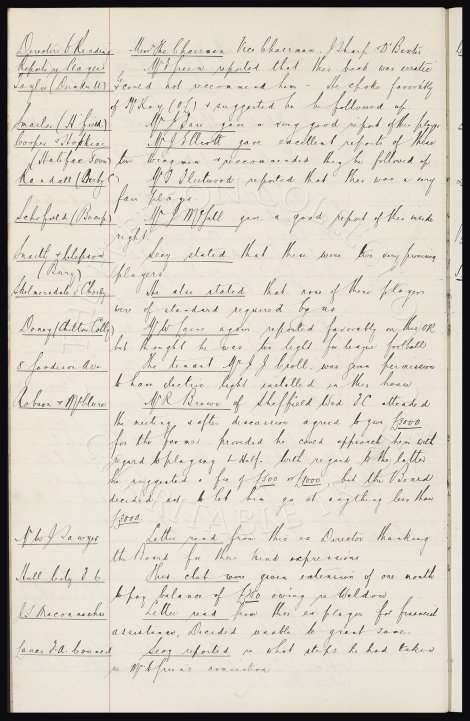 Directors & Reading Mess the Chairman, Vice Chairman, J Sharp & D Baxter
Reports on Players Mr Green reported that this back was erratic
Taylor & could not recommend him - He spoke favorably
of McKay (o/l) & suggested he be followed up.
Mr gave a very good report of this player
Cooper & Hopkins Mr J Elliott gave excellent reports of these
(Halifax Town) two wingmen & recommended they be followed up
Kendall (Derby C) Mr T Fleetwood reported that this was a very
fair player
Schofield Mr J McGill gave a good report of this inside
right
Smith & Secy stated that these were two very promising
(Bury) players
Skelmersdale & Chorley He also stated that none of these players
were of standard required by us
again reported favorably on this OR
but thought he was too light for league football
8 Goodison Ave The tenant Mr J J Croll was given permission
to have electric light installed in this house
Robson & McClure Mr R Brown of Sheffield Wed FC attended
the meeting & after discussion agreed to give £3000
for the former provided he could approach him with
regard to playing L Half. With regard to the latter
he suggested a fee of £500 or £1000, but the Board
decided not to let him go at anything less than
£3000.
Mr W J Sawyer Letter read from this ex Director thanking
the Board for their kind expressions
Hull City F C This club were given extension of one month
to pay balance of owing re Weldon
J S Maconnachie Letter read from this ex player for financial
assistance, Decided unable to grant same.
Lancs F.A. Council Secy reported on what steps he had taken
re Mr Green's nomination